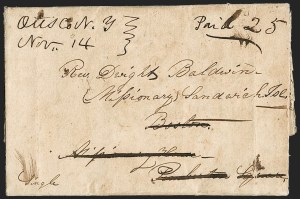 Otisco N. Y
Nov. 14
Paid 25
Rev. Dwight Baldwin
(Missionary) Sandwich Isl.
Boston
Single